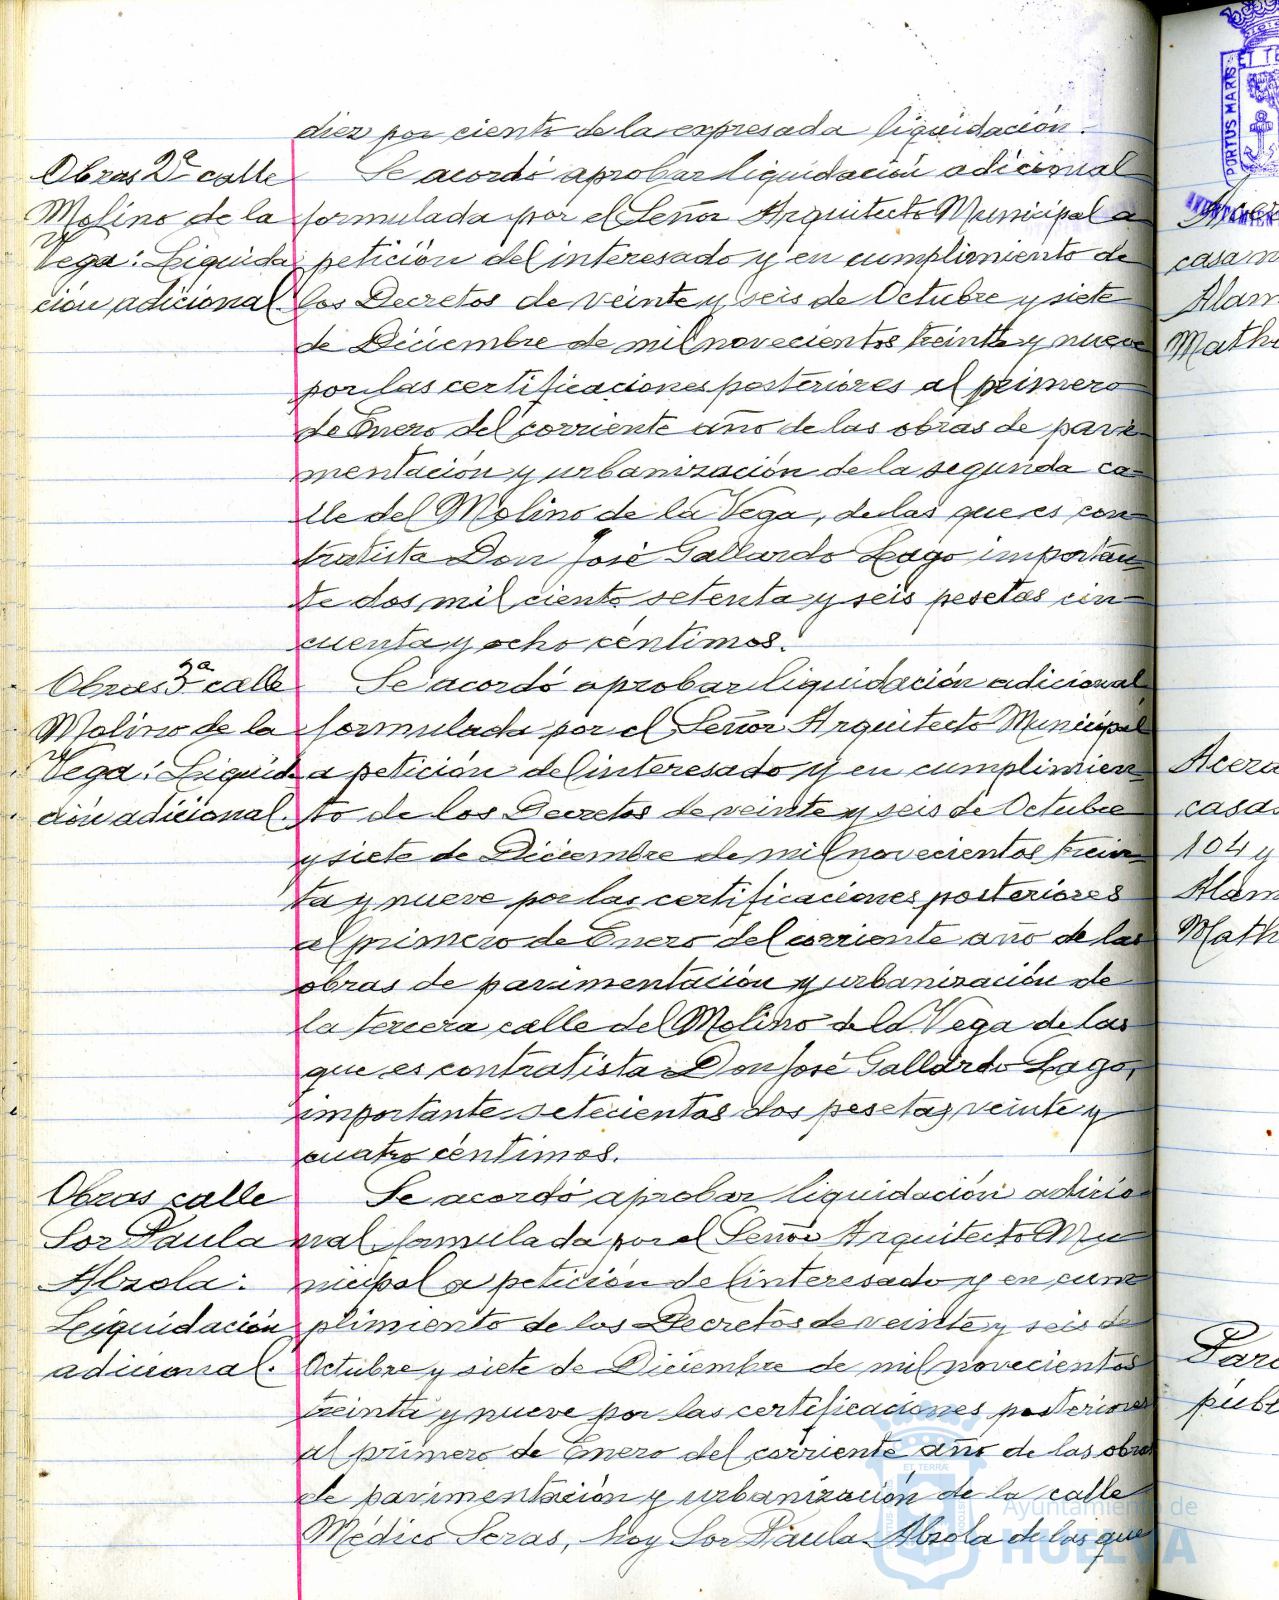 diez por ciento de la expresada liquidación.
Obras 2ª calle
Molino de la
Vega: Liquida
ción adicional.
Se acordó aprobar liquidación adicional
formulada por el Señor Arquitecto Municipal a
petición del interesado y en cumplimiento de
los Decretos de veinte y seis de Octubre y siete
de Diciembre de mil novecientos treinta y nueve
por las certificaciones posteriores al primero
de Enero del corriente año de las obras de pavi-
mentación y urbanización de la segunda ca-
lle del Molino de la Vega, de las que es con-
tratista Don José Gallardo Lago importan-
te dos mil ciento setenta y seis pesetas cin-
cuenta y ocho céntimos.
Obras 3ª calle
Molino de la
Vega: Liquida
ción adicional.
Se acordó aprobar liquidación adicional
formulada por el Señor Arquitecto Municipal
a petición del interesado y en cumplimien-
to de los Decretos de veinte y seis de Octubre
y siete de Diciembre de mil novecientos trein-
ta y nueve por las certificaciones posteriores
al primero de Enero del corriente año de las
obras de pavimentación y urbanización de
la tercera calle del Molino de la Vega de las
que es contratista Don José Gallardo Lago,
importante setecientas dos pesetas veinte y
cuatro céntimos.
Obras calle
Sor Paula
Alzola:
Liquidación
adicional.
Se acordó aprobar liquidación adicio-
nal formulada por el Señor Arquitecto Mu
nicipal a petición del interesado y en cum
plimiento de los Decretos de veinte y seis de
Octubre y siete de Diciembre de mil novecientos
treinta y nueve por las certificaciones posteriores
al primero de Enero del corriente año de las obras
de pavimentación y urbanización de la calle
Médico Seras, hoy Sor Paula Alzola de las que
PORTUS MARIS
ET TE
AYUNTAMIEN
casa n
Alam
Math
Acera
casas
104 y
Alam
Math
Par
públ
Ayuntamiento de
HUELVA